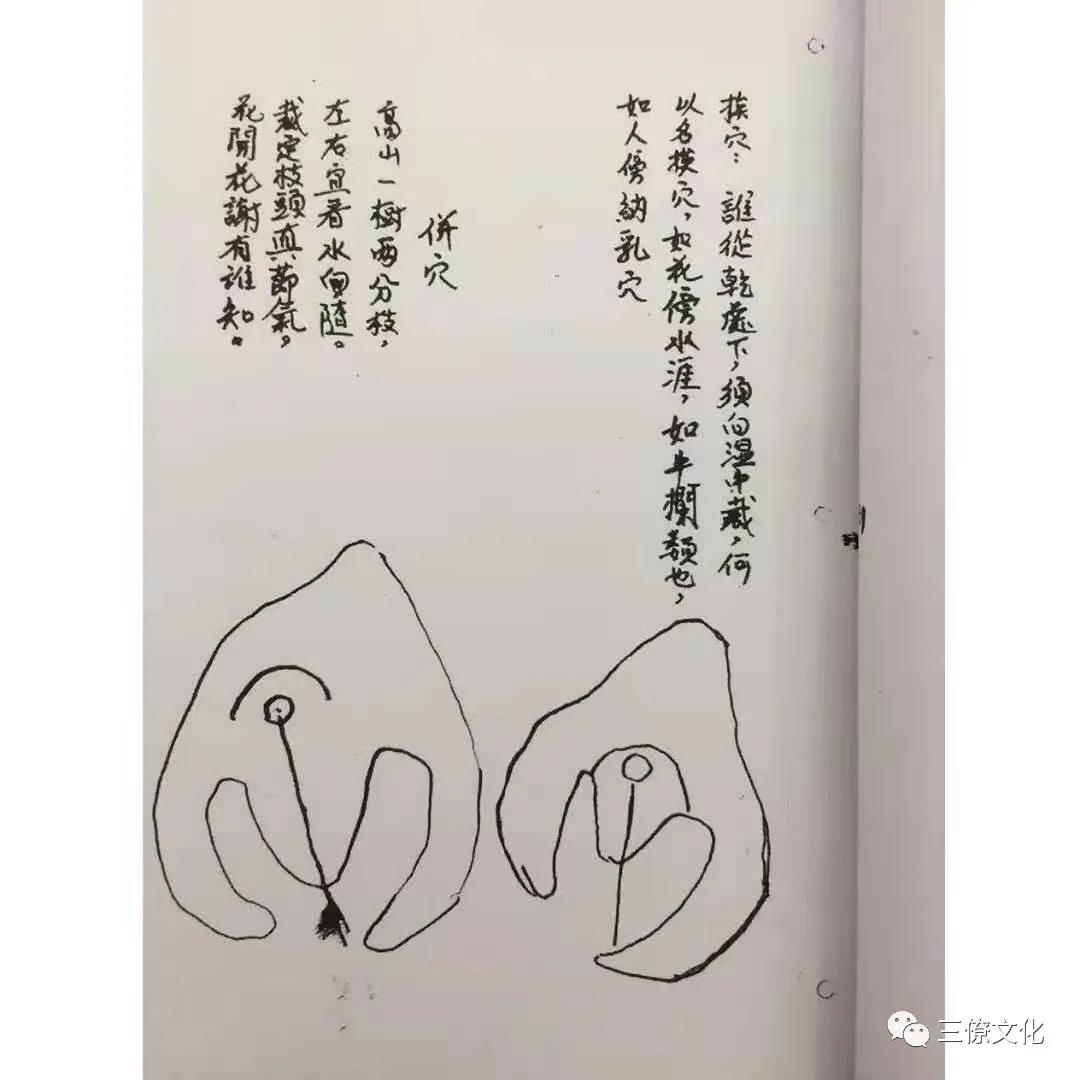 挨穴：誰從乾處下，須向溫中藏，何
以名挨穴，如花傍水涯，如牛攔類也，
如人傍納乳穴
併穴
高山一樹兩分枝，
左右宜看水向隨。
裁定枝頭真節氣，
花開花謝有誰知。
三僚文化